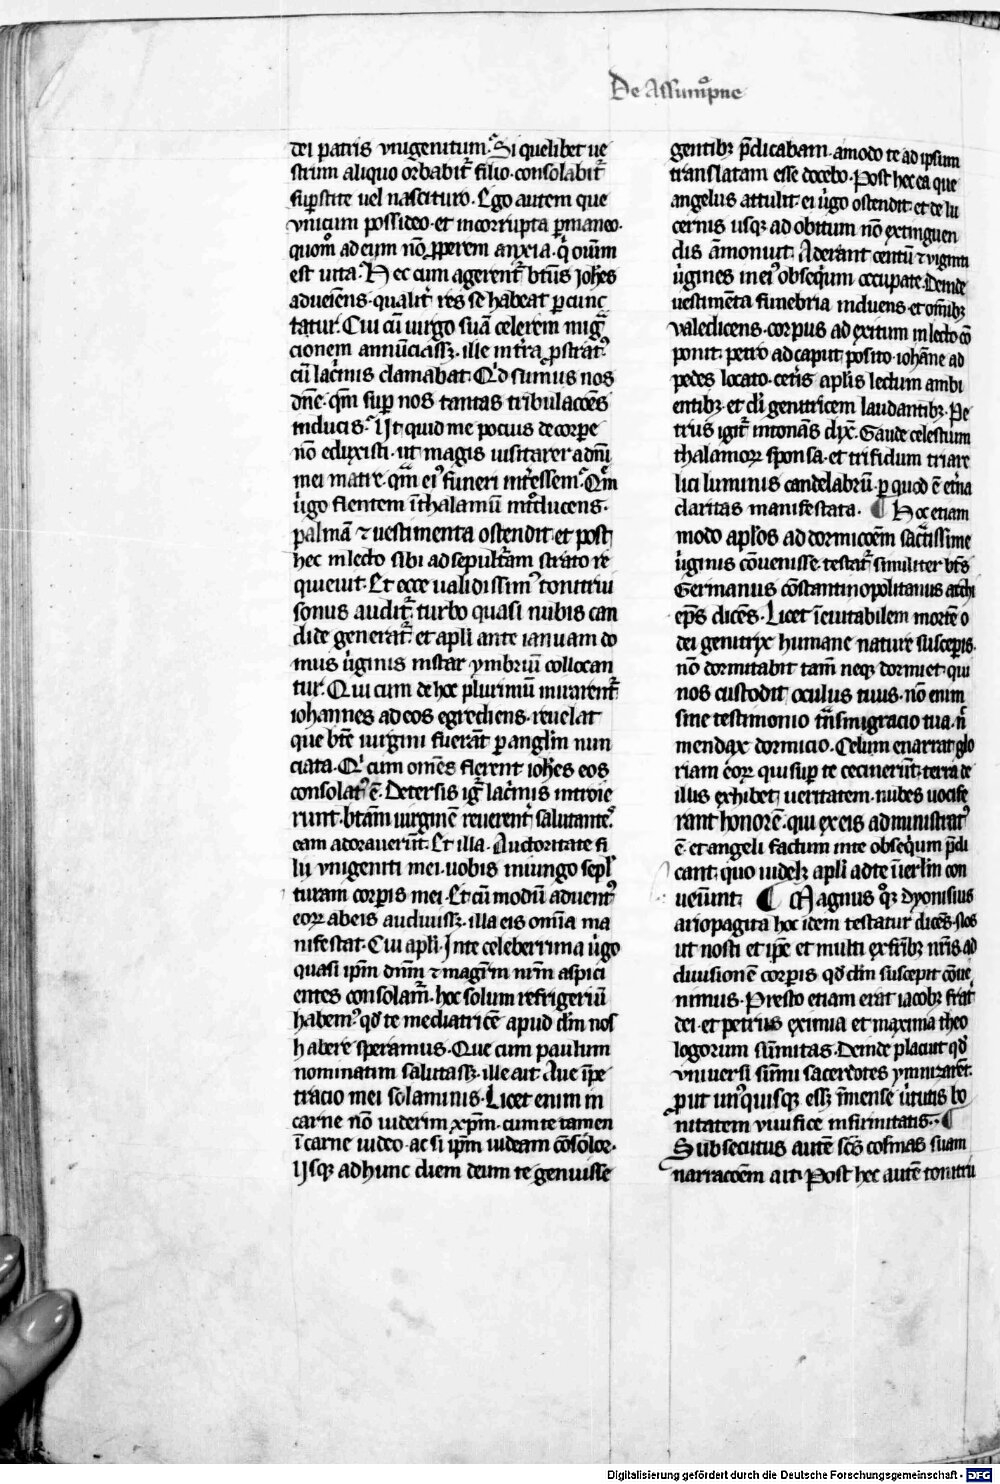 De Assumpͦne
dei patris vnigenitum. Si quelibet ue
strum aliquo orbabit᷑ filio. consolabit᷑
suꝑstite uel nascituro. Ego autem que
vnicum possideo. et incorrupta ꝑmaneo.
quomͦ ad eum nō ꝓperem anxia. qͥ oīum
est uita. Hec cum agerent᷑ btūs ioh̄es
adueiēns. qualit̓ res se habeat ꝑcunc
tatur. Cui cū uirgo suā celerem migͣ
cionem annūciassꝫ. ille in tr̓ra ꝓstratꝰ
cū lac̓mis clamabat. Qͥd sumus nos
dn̄e. qm̄ suꝑ nos tantas tribulacōēs
inducis. Ut quid me pocius de corꝑe
nō eduxisti. ut magis uisitarer a dn̄i
mei matre. qͣm eiꝰ funeri int̓essem. Qͣm
u̓go flentem ī thalamū int̓ducens.
palmā ⁊ uestimenta ostendit. et post
hec in lecto sibi ad sepult᷑am strato re
quieuit. Et ecce ualidissimꝰ tonitrui
sonus audit᷑. turbo quasi nubis can
dide generat᷑. et apl̄i ante ianuam do
mus u̓ginis instar ymbriū collocan
tur. Qui cum de hoc plurimū mirarent᷑
iohannes ad eos egrediens. reuelat
que bt̄e uirgini fuerāt ꝑ angl̄m nun
ciata. Qͥ cum om̄es flerent ioh̄es eos
consolatꝰ ē. Detersis ig᷑ lac̓mis introie
runt. bt̄am uirginē reuerent̓ salutantes.
eam adorauerūt. Et illa. Auctoritate fi
lii vnigeniti mei. uobis iniungo sepl̓
turam corꝑis mei. Et cū modū aduentꝰ
eoꝝ ab eis audiuissꝫ. illa eis om̄ia ma
nifestat. Cui apl̄i. In te celeberrima u̓go
quasi ip̄m dn̄m ⁊ mag̓rm nr̄m aspici
entes consolam᷑. hoc solum refrigeriū
habemꝰ. qd̓ te mediatricē apud dm̄ nos
habere speramus. Que cum paulum
nominatim salutassꝫ. ille ait. Aue in̄pe
tracio mei solaminis. Licet enim in
carne nō uiderim xp̄m. cum te tamen
ī carne uideo. ac si ip̄m uideam cōsolor.
Usqꝫ ad hunc diem deum te genuisse
gentibꝫ p̄dicabam. amodo te ad ipsum
translatam esse docebo. Post hec ea que
angelus attulit. ei u̓go ostendit. et de lu
cernis usqꝫ ad obitum nō extinguen
dis āmonuit. Aderant centū ⁊ viginti
u̓gines in eiꝰ obseqͥum occupate. Deinde
uestimēta funebria induens. et om̄ibꝫ
valedicens. corpus ad exitum in lecto cō
ponit. petro ad caput posito. iohāne ad
pedes locato. cet̓is aplis lectum ambi
entibꝫ. et di genitricem laudantibꝫ. Pe
trus igit᷑ intonās dix̄. Gaude celestium
thalamoꝝ sponsa. et trifidum triare
lici luminis candelabrū. ꝑ quod ē et̓na
claritas manifestata. ¶ Hoc etiam
modo apl̓os ad dormicōem sacͣtissime
u̓ginis cōuenisse. testat᷑ similiter bt̄s
Germanus cōstantinopolitanus archi
ep̄s dicēs. Licet īeuitabilem mortē o
dei genitrix humane nature susceꝑis.
nō dormitabit tam̄ neqꝫ dormiet. qui
nos custodit. oculus tuus. nō enim
sine testimonio tn̄smigracio tua. nͥ
mendax dormicio. Celum enarrat glo
riam eoꝝ qui suꝑ te cecinerūt. terra de
illis exhibet ueritatem. nubes uocife
rant honorē. qui ex eis administratꝰ
ē. et angeli factum in te obseqͥum p̄di
cant. quo uidelꝫ apl̄i ad te ī ierl̄m con
ueūnt. ¶ Magnus qͦꝫ dyonisius
ariopagita hoc idem testatur dicēs. Nos
ut nosti et ip̄e et multi ex fr̄ibꝫ nr̄is ad
diuisionē corꝑis qd̓ dm̄ suscepit cōue
nimus. Presto etiam erat iacobꝫ frat̓
dei. et petrus eximia et maxima theo
logorum sūmitas. Deinde placuit qd̓
vniuersi sūmi sacerdotes ymnizarēt.
ꝓut unꝰquisqꝫ essꝫ īmense u̓tutis bo
nitatem viuifice infirmitatis. ¶
Subsecutus autē sc̄s cosmas suam
narracōem ait. Post hec autē tonitru